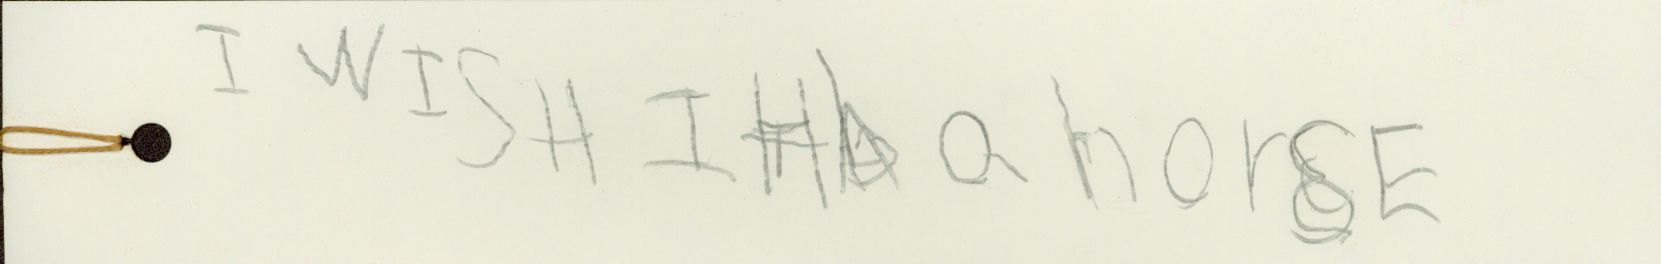 I WISH I HAD a horSE